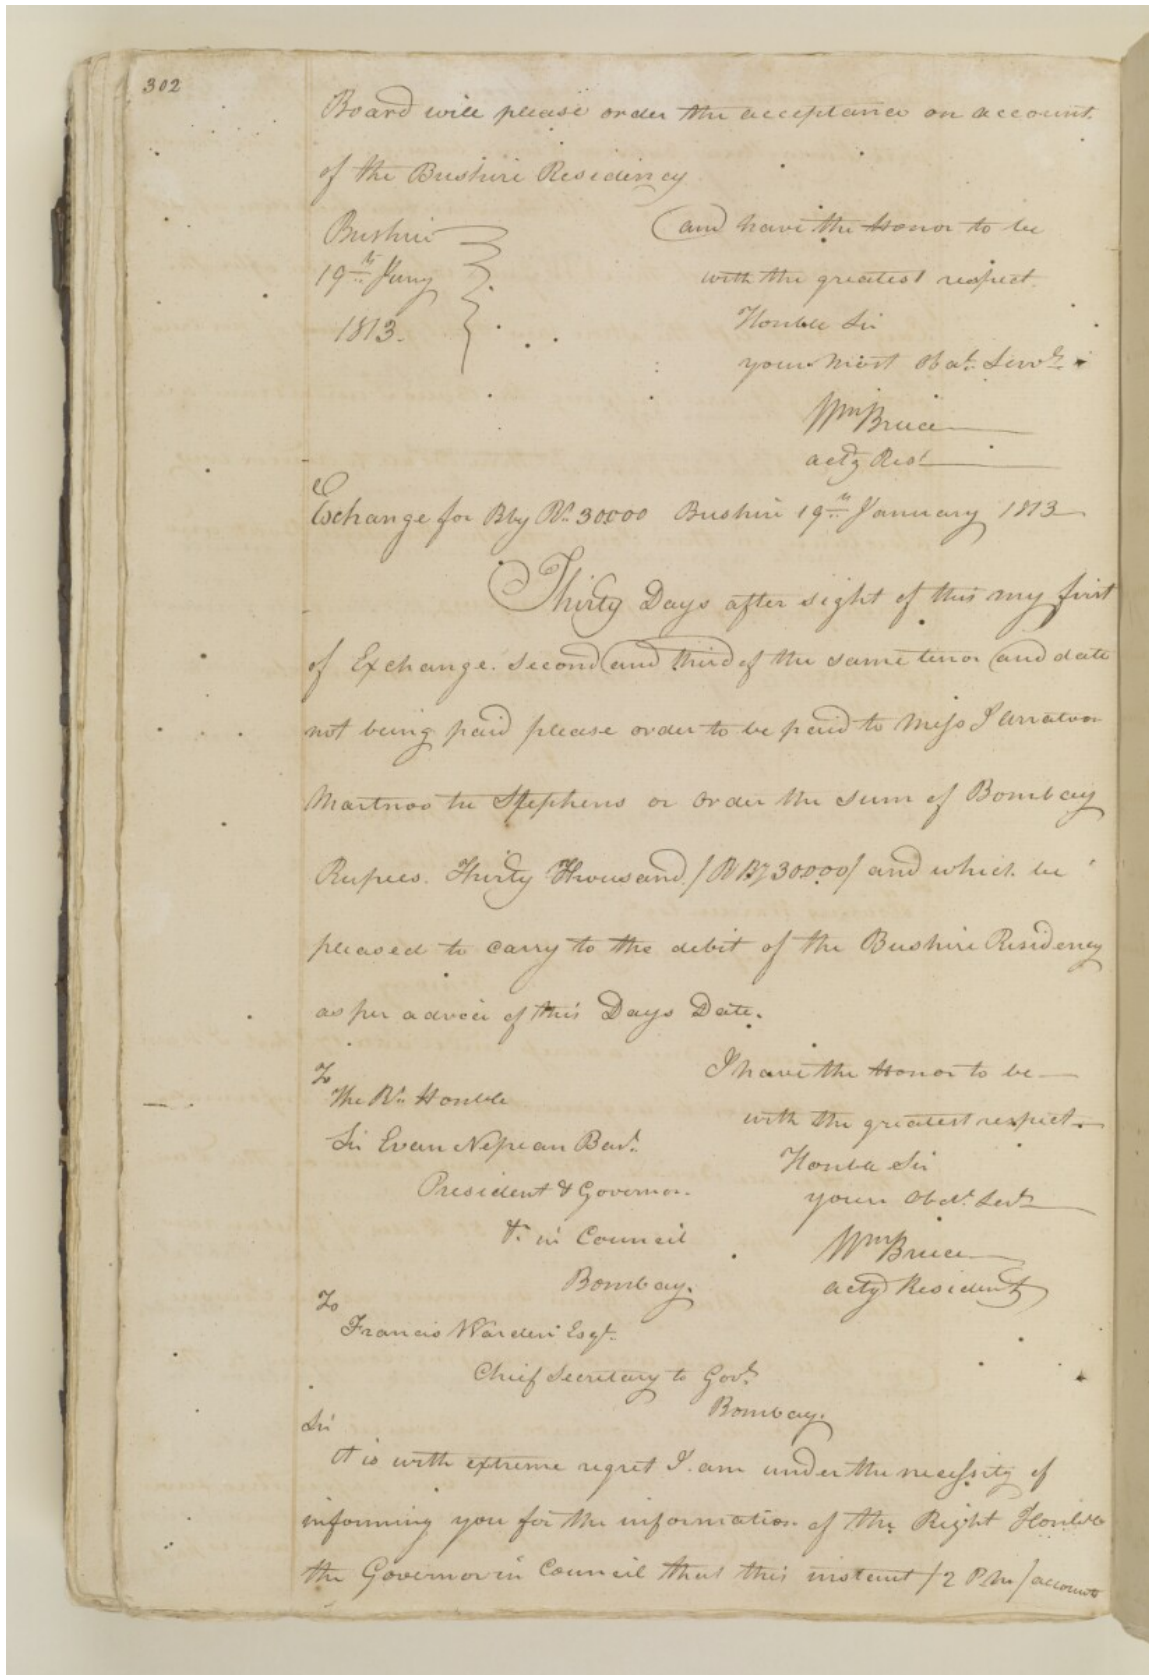 302
Board will please order the acceptance on account
of the Bushire Residency
Bushire
19th Jany
1813.
and have the Honor to be
with the greatest respect
Honble Sir
your most Obdt. Servt.
Wm Bruce
actg Rest
Exchange for Bby Rs. 30000 Bushire 19th January 1813
Thirty Days after sight of this my first
of Exchange. Second and third of the same tenor and date
not being paid please order to be paid to Mess
Stephens or Order the sum of Bombay
Rupees. Thirty Thousand / 30000 / and which be
pleased to carry to the debit of the Bushire Residency
as per advice of this Days Date.
I have the Honor to be
with the greatest respect
Honble Sir
your Obdt. Servt
Wm Bruce
actg Resident
To
The Rt. Honble
Sir Evan Nepean Bart.
President & Governor
&c. in Council
Bombay.
To
Francis Warden Esqr.
Chief Secretary to Govt.
Bombay.
Sir
It is with extreme regret I am under the necessity of
informing you for the information of the Right Honble
the Governor in Council that this instant / 2 P.M / accounts